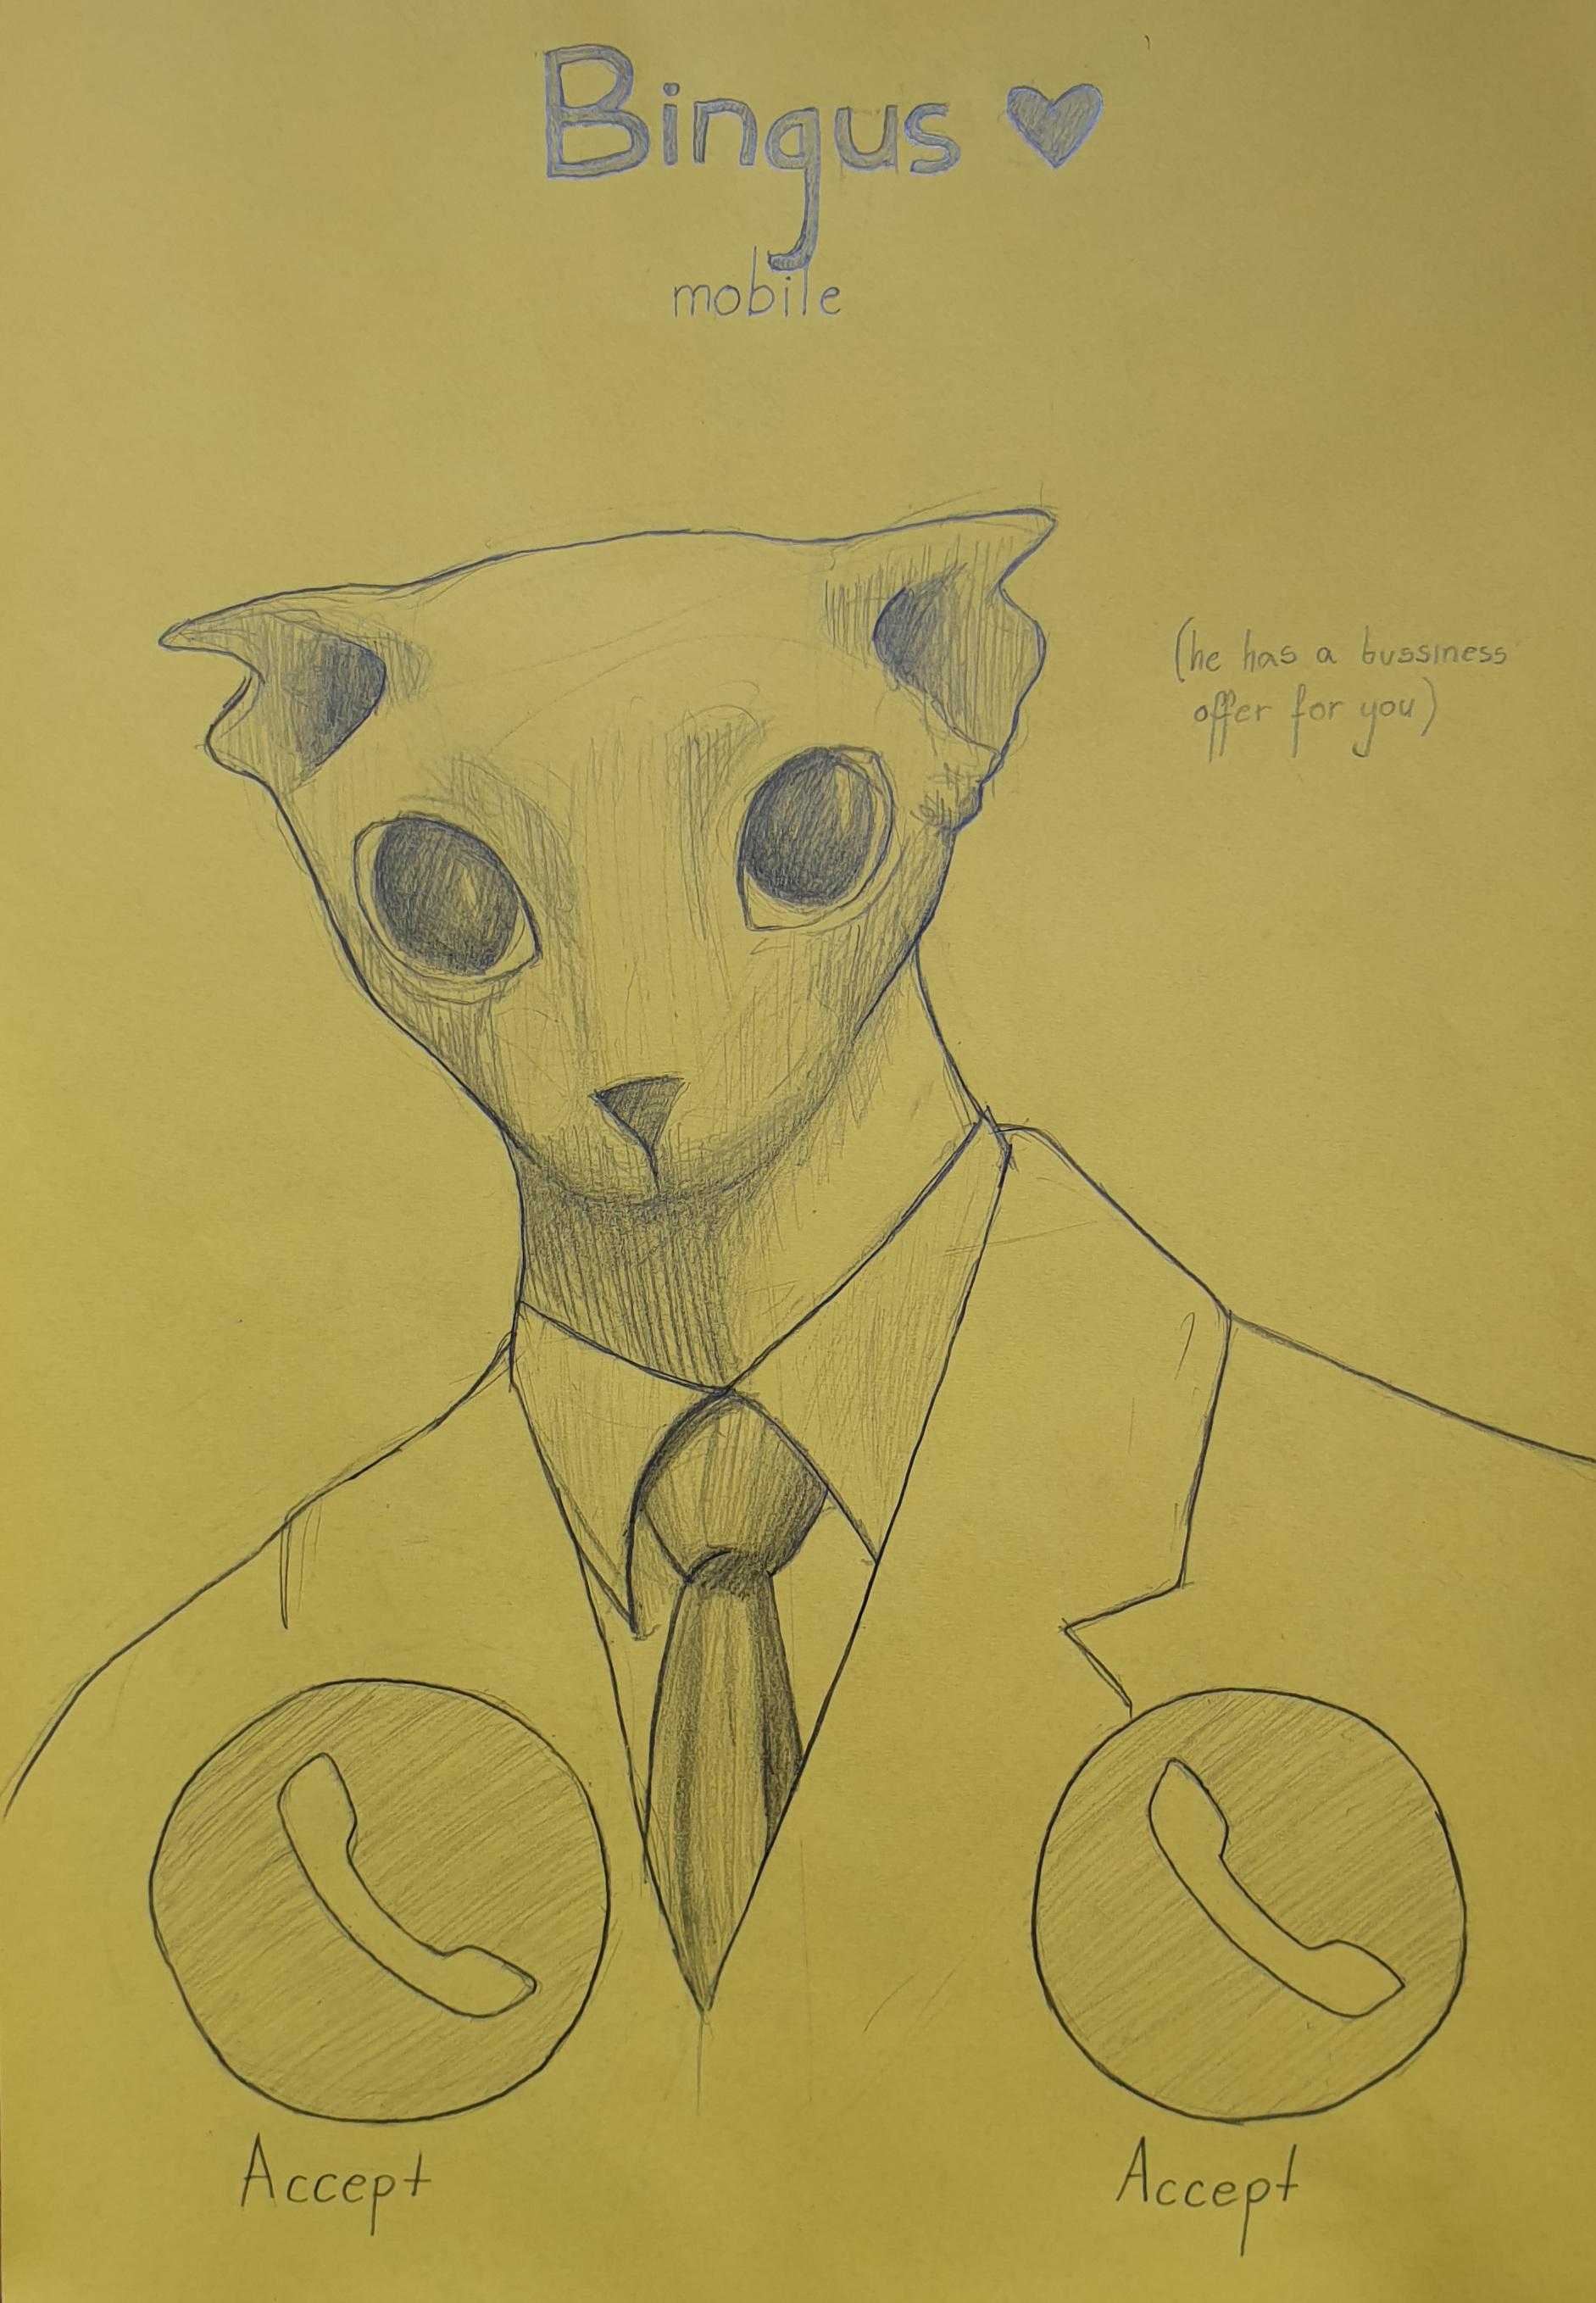 Bingus ♥
mobile
(he has a bussiness
offer for you)
Accept
Accept